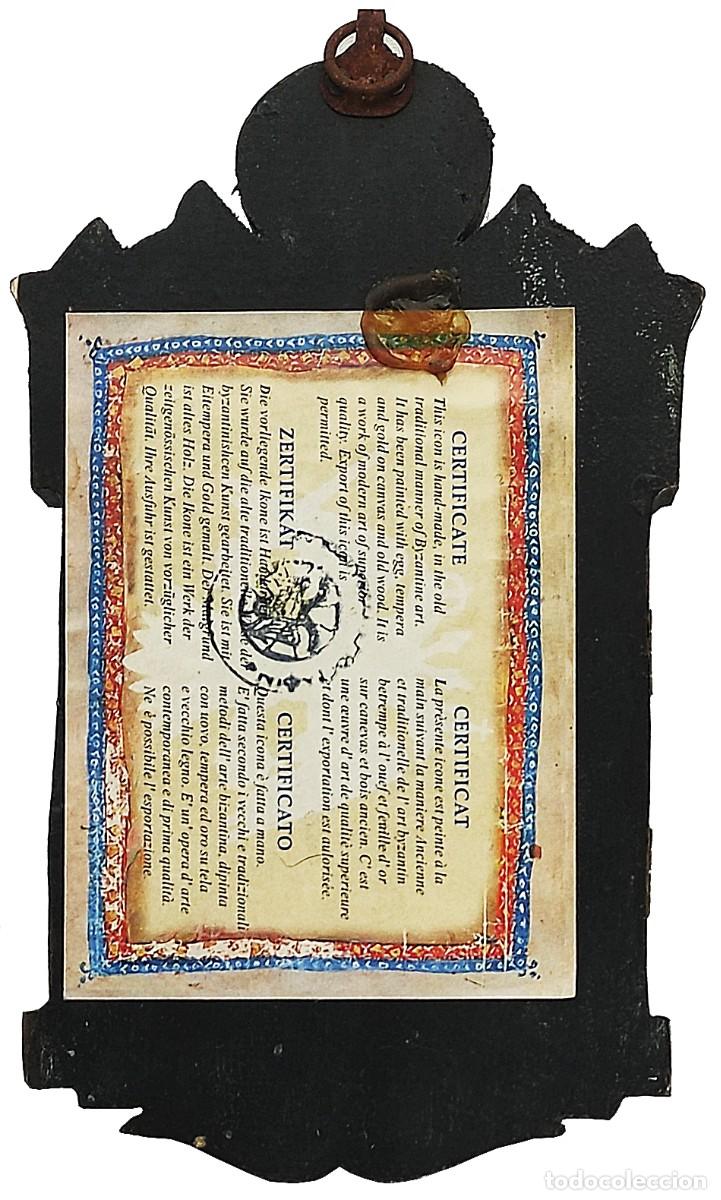 CERTIFICATE
This icon is hand-made, in the old
traditional manner of Byzantine art.
It has been painted with egg, tempera
and gold on canvas and old wood. It is
a work of modern art of superior
quality. Export of this icon is
permitted.
CERTIFICAT
La prèsente icone est peinte à la
main suivant la maniere Ancienne
et traditionelle de l' art byzantin
betrempe à l' ouef et feuille d' or
sur canevas et bois ancien. C' est
une œuvre d' art de qualité supèrieure
et dont l' exportation est autorisée.
ZERTIFIKAT
Die vorliegende Ikone ist
Sie wurde auf die alte der
byzantinishcen Kunst gearbeitet. Sie ist mit
Eitempera und Gold gemalt.
ist altes Holz. Die Ikone ist ein Werk der
zeitgenössischen Kunst von vorzüglicher
Qualitat. Ihre Ausfuhr ist gestattet.
CERTIFICATO
Questa icona è fatta a mano.
E' fatta secondo i vecchi e tradizionali
metodi dell' arte bizantina, dipinta
con uovo, tempera ed oro su tela
e vecchio legno. E' un' opera d' arte
contemporanea e di prima qualità.
Ne è possibile l' esportazione
todocoleccion